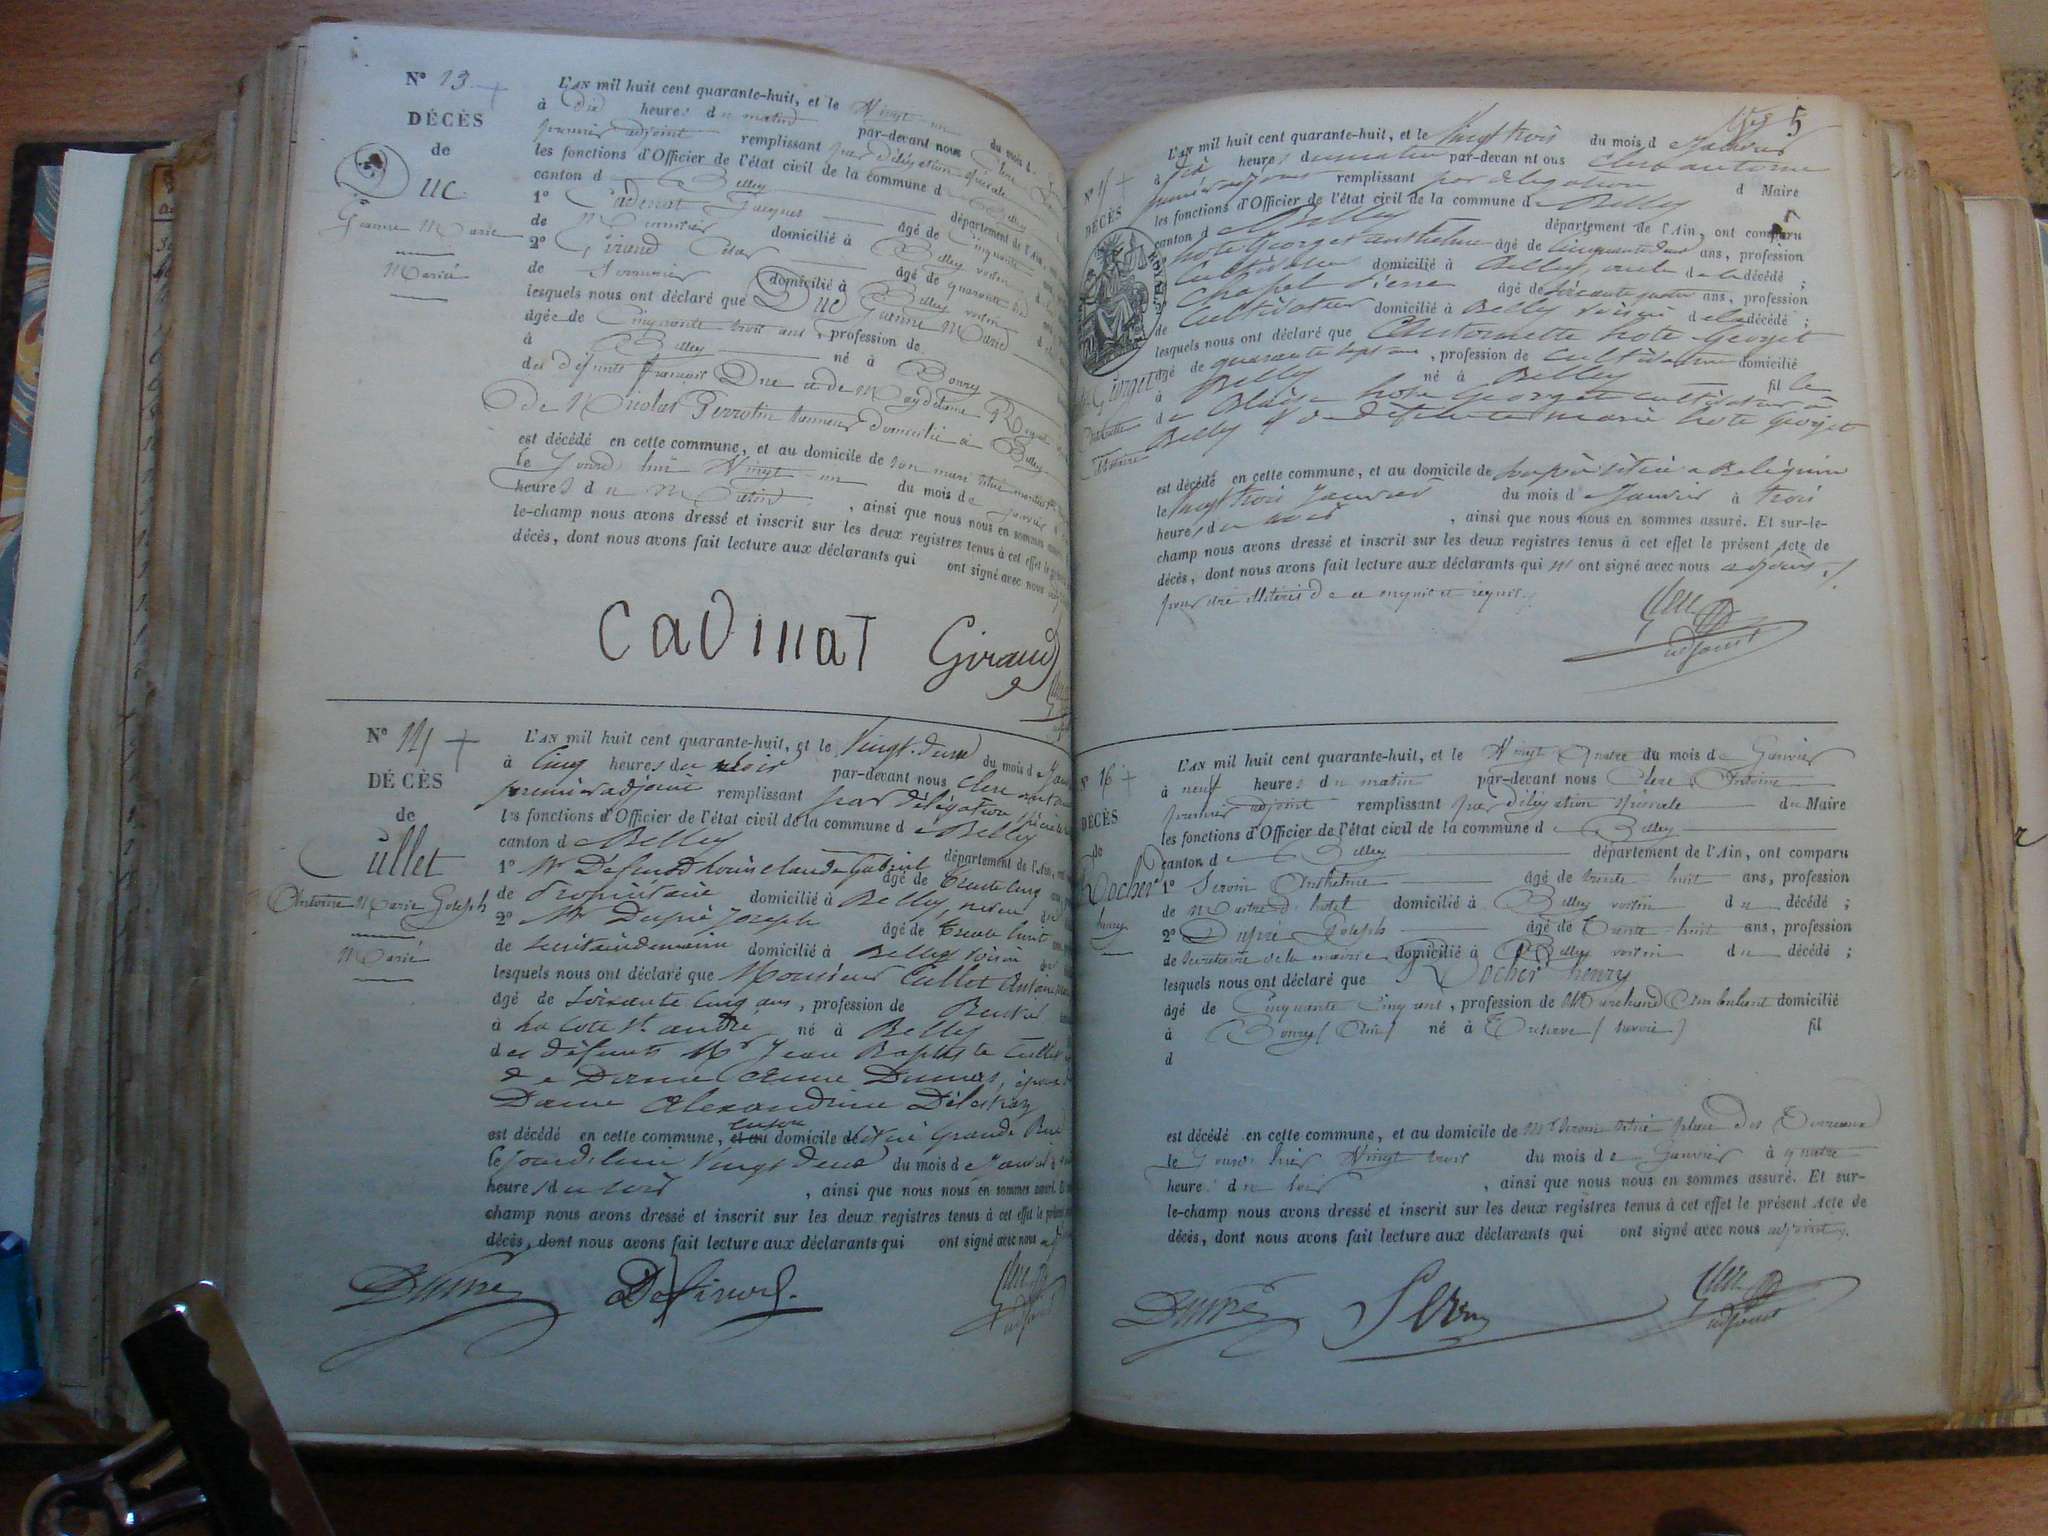 N° 13
DÉCÈS
de
Duc
Jeanne Marie
Marié
L'AN mil huit cent quarante-huit, et le Vingt un du mois d
à Dix heures du matin par-devant nous Clerc
premier adjoint remplissant par délégation spéciale
les fonctions d'Officier de l'état civil de la commune d Belley
canton d Belley département de l'Ain, ont
1° Cadinat Jacques âgé de Cinquante
de domicilié à Belley voisin
2° Giraud César âgé de quarante six
de Serrurier domicilié à Belley voisin
lesquels nous ont déclaré que Duc Jeanne Marie
âgée de Cinquante trois ans, profession de
à Belley né à Bonry
des défunts françois Duc et de Magdelaine
de Nicolas Perrotin tanneur domicilié à Belley
est décédé en cette commune, et au domicile de son mari situé
le Jourd'hui Vingt un du mois de Janvier
heures du Matin, ainsi que nous nous en sommes
le-champ nous avons dressé et inscrit sur les deux registres tenus à cet effet le
décès, dont nous avons fait lecture aux déclarants qui ont signé avec nous
CADINAT Giraud
N° 14
DÉCÈS
de
Cullet
Antoine Marie Joseph
Marié
L'AN mil huit cent quarante-huit, et le Vingt-deux du mois de
à Cinq heures du soir par-devant nous Clerc
premier adjoint remplissant par délégation spéciale
les fonctions d'Officier de l'état civil de la commune de Belley
canton de Belley département de l'Ain,
1° Mr Louis Claude Gabriel âgé de trente cinq
de Propriétaire domicilié à Belley, neveu
2° Mr Dupré Joseph âgé de trente huit
de secrétaire de mairie domicilié à Belley voisin
lesquels nous ont déclaré que Monsieur Cullet Antoine
âgé de soixante cinq ans, profession de Rentier
à La Cote St André né à Belley
des défunts Mr Jean Baptiste Cullet
de Dame Dumas, époux
Dame Alexandrine
est décédé en cette commune, et au domicile de situé Grande Rue
le jourd'hui Vingt deux du mois de Janvier
heures du soir, ainsi que nous nous en sommes assuré.
champ nous avons dressé et inscrit sur les deux registres tenus à cet effet le
décès, dont nous avons fait lecture aux déclarants qui ont signé avec nous
Dupré
5
N° 15
DÉCÈS
L'AN mil huit cent quarante-huit, et le Vingt trois du mois de Janvier
à dix heures du matin par-devant nous Clerc antoine
premier adjoint remplissant par délégation d Maire
les fonctions d'Officier de l'état civil de la commune de Belley
canton d Belley département de l'Ain, ont comparu
hote Georget anthelme âgé de Cinquante deux ans, profession
Cultivateur domicilié à Belley, oncle de la décédé ;
Chapel Pierre âgé de soixante quatre ans, profession
de Cultivateur domicilié à Belley voisin de la décédé ;
lesquels nous ont déclaré que Antoinette hote Georget
âgé de quarante sept ans, profession de Cultivatrice domicilié
à Belley né à Belley fille
de Blaise hote Georget cultivateur à
Belley & de défunte marie hote Georget
est décédé en cette commune, et au domicile de son père situé a
le Vingt trois Janvier du mois de Janvier à trois
heures du, ainsi que nous nous en sommes assuré. Et sur-le-
champ nous avons dressé et inscrit sur les deux registres tenus à cet effet le présent Acte de
décès, dont nous avons fait lecture aux déclarants qui n'ont signé avec nous adjoint
pour être illitérés de ce enquis et requis
Clerc
adjoint
N° 16
DÉCÈS
de
Rocher
henry
L'AN mil huit cent quarante-huit, et le Vingt Quatre du mois de Janvier
à neuf heures du matin par-devant nous Clerc Antoine
premier adjoint remplissant par délégation spéciale du Maire
les fonctions d'Officier de l'état civil de la commune de Belley
canton de Belley département de l'Ain, ont comparu
1° Servin Anthelme âgé de trente huit ans, profession
de Maitre d'hotel domicilié à Belley voisin du décédé ;
2° Dupré Joseph âgé de trente huit ans, profession
de Secrétaire de la mairie domicilié à Belley voisin du décédé ;
lesquels nous ont déclaré que Rocher henry
âgé de Cinquante Cinq ans, profession de Marchand Ambulant domicilié
à né à (Savoie) fil
d
est décédé en cette commune, et au domicile de Mr Servin situé place des Terreaux
le Jour d'hier Vingt trois du mois de Janvier à quatre
heures du soir, ainsi que nous nous en sommes assuré. Et sur-
le-champ nous avons dressé et inscrit sur les deux registres tenus à cet effet le présent Acte de
décès, dont nous avons fait lecture aux déclarants qui ont signé avec nous adjoint
Dupré Clerc
adjoint